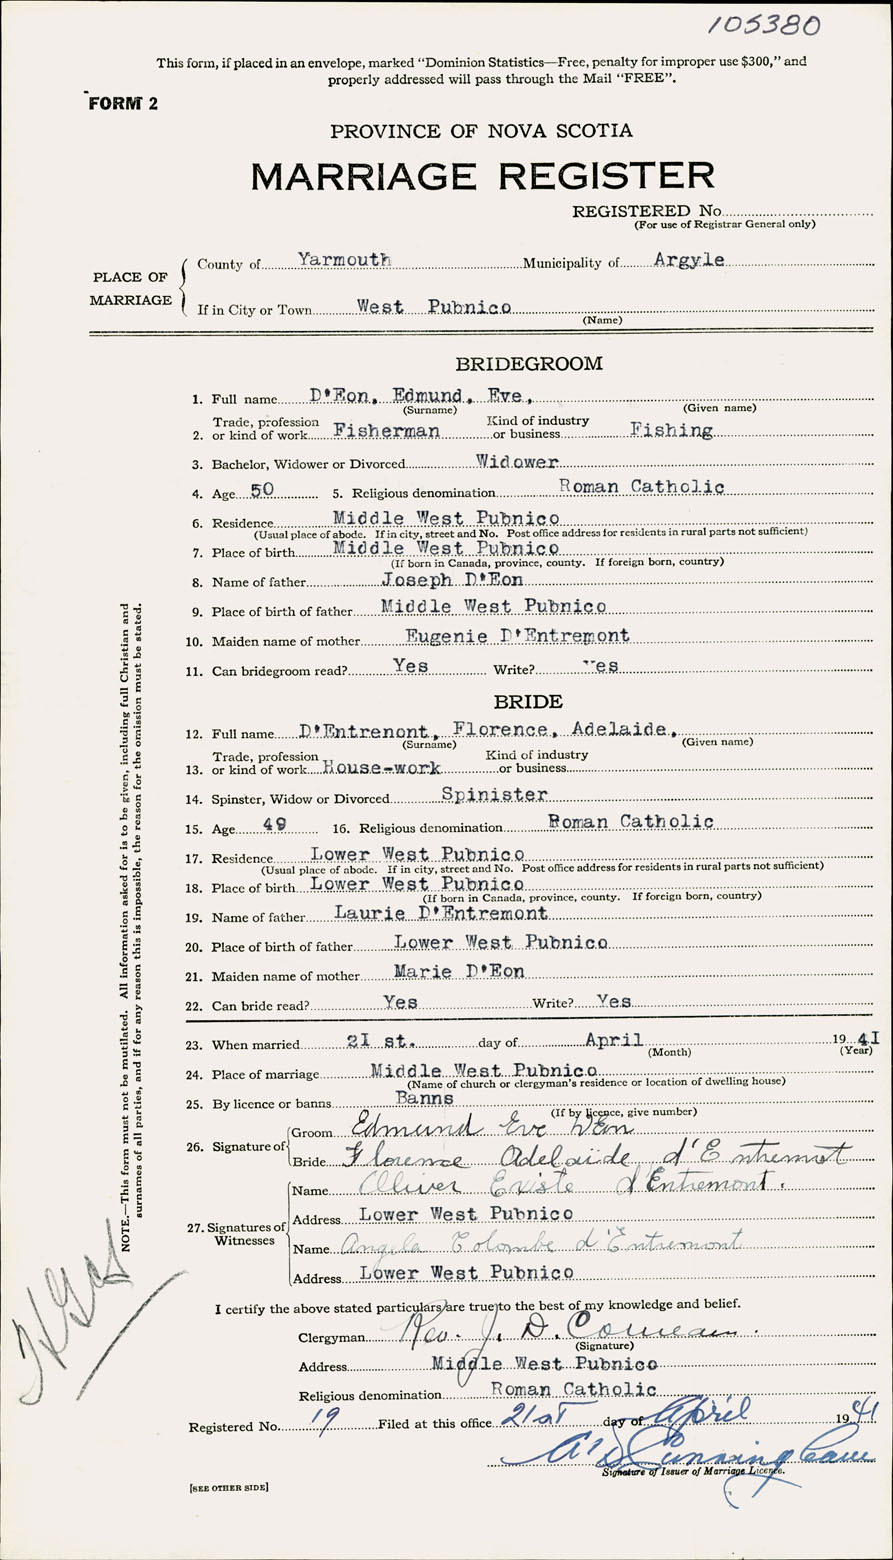 105380
This form, if placed in an envelope, marked "Dominion Statistics—Free, penalty for improper use $300," and
properly addressed will pass through the Mail "FREE".
FORM 2
PROVINCE OF NOVA SCOTIA
MARRIAGE REGISTER
REGISTERED No.
(For use of Registrar General only)
PLACE OF MARRIAGE
County of Yarmouth Municipality of Argyle
If in City or Town West Pubnico
(Name)
BRIDEGROOM
1. Full name D'Eon, Edmund, Eve,
(Surname) (Given name)
2. Trade, profession or kind of work Fisherman Kind of industry or business Fishing
3. Bachelor, Widower or Divorced Widower
4. Age 50 5. Religious denomination Roman Catholic
6. Residence Middle West Pubnico
(Usual place of abode. If in city, street and No. Post office address for residents in rural parts not sufficient)
7. Place of birth Middle West Pubnico
(If born in Canada, province, county. If foreign born, country)
8. Name of father Joseph D'Eon
9. Place of birth of father Middle West Pubnico
10. Maiden name of mother Eugenie D'Entremont
11. Can bridegroom read? Yes Write? Yes
BRIDE
12. Full name D'Entrenont, Florence, Adelaide,
(Surname) (Given name)
13. Trade, profession or kind of work House-work Kind of industry or business
14. Spinster, Widow or Divorced Spinister
15. Age 49 16. Religious denomination Roman Catholic
17. Residence Lower West Pubnico
(Usual place of abode. If in city, street and No. Post office address for residents in rural parts not sufficient)
18. Place of birth Lower West Pubnico
(If born in Canada, province, county. If foreign born, country)
19. Name of father Laurie D'Entremont
20. Place of birth of father Lower West Pubnico
21. Maiden name of mother Marie D'Eon
22. Can bride read? Yes Write? Yes
23. When married 21 st. day of April 19 41
(Month) (Year)
24. Place of marriage Middle West Pubnico
(Name of church or clergyman's residence or location of dwelling house)
25. By licence or banns Banns
(If by licence, give number)
26. Signature of
Groom Edmund Eve D'Eon
Bride Florence Adelaide d'Entremont
27. Signatures of Witnesses
Name Oliver Exisle d'Entremont.
Address Lower West Pubnico
Name Angela Colombe d'Entremont
Address Lower West Pubnico
I certify the above stated particulars are true to the best of my knowledge and belief.
Clergyman Rev. J. D. Comeau.
(Signature)
Address Middle West Pubnico
Religious denomination Roman Catholic
Registered No. 19 Filed at this office 21st day of April 19 41
Cunningham
Signature of Issuer of Marriage Licence.
[SEE OTHER SIDE]
NOTE.—This form must not be mutilated. All information asked for is to be given, including full Christian and
surnames of all parties, and if for any reason this is impossible, the reason for the omission must be stated.